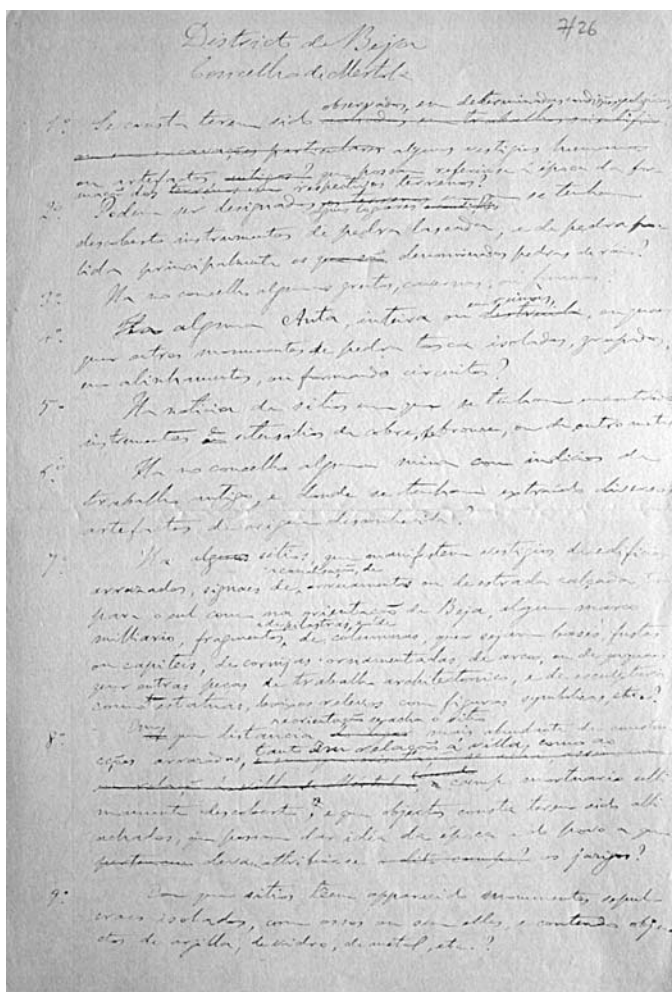 7/26
Districto de Beja
Concelho de Mertola
observados, em determinadas condições
1º Se consta terem sido isolados, em trabalhos
ou em excavações particulares alguns vestigios humanos
ou artefactos antigos? que possam referir-se á época da for-
mação dos respectivos terrenos?
2º Podem ser designados alguns logares se tenham
descoberto instrumentos de pedra lascada, e de pedra po-
lida principalmente os que são denominados pedras de raio?
3º Ha no concelho algumas grutas, cavernas, ou furnas?
em ruinas,
4º Ha alguma Anta, inteira ou destruida, ou quaes-
quer outros monumentos de pedra tosca isolados, grupados,
em alinhamentos, ou formando circuitos?
5º Ha noticia de sitios em que se tenham encontrado
instrumentos ou utensilios de cobre, de bronze, ou de outro metal
6º Ha no concelho alguma mina com indicios de
trabalho antigo, e donde se tenham extraido diversos
artefactos de origem desconhecida?
7º Ha alguns sitios, que manifestem vestigios de edificios
canalisação, de
arrazados, signaes de arruamentos ou de estrada calçada
para o sul com na orientação de Beja, algum marco
e de pilastras, e de
milliario, fragmentos, de columnas, quer sejam bases, fustes
ou capiteis, de cornijas ornamentadas, de arcos, ou de quaes-
quer outras peças de trabalho architectonico, e de esculptura
como estatuas, baixos relevos com figuras symbolicas, etc.?
e orientação fica o sitio
8º Em que distancia mais abundante de constru-
cções arrazadas, tanto em relação á villa, como ao
em relação á villa de Mertola, campo mortuario ulti-
mamente descoberto, e que objectos consta terem sido alli
achados, que possam dar idéa da época e do povo a que
pertencem deva attribuir-se os jazigos?
9º Em que sitios teem apparecido monumentos sepul-
craes isolados, com ossos ou sem elles, e contendo obje-
ctos de argilla, de vidro, de metal, etc.?